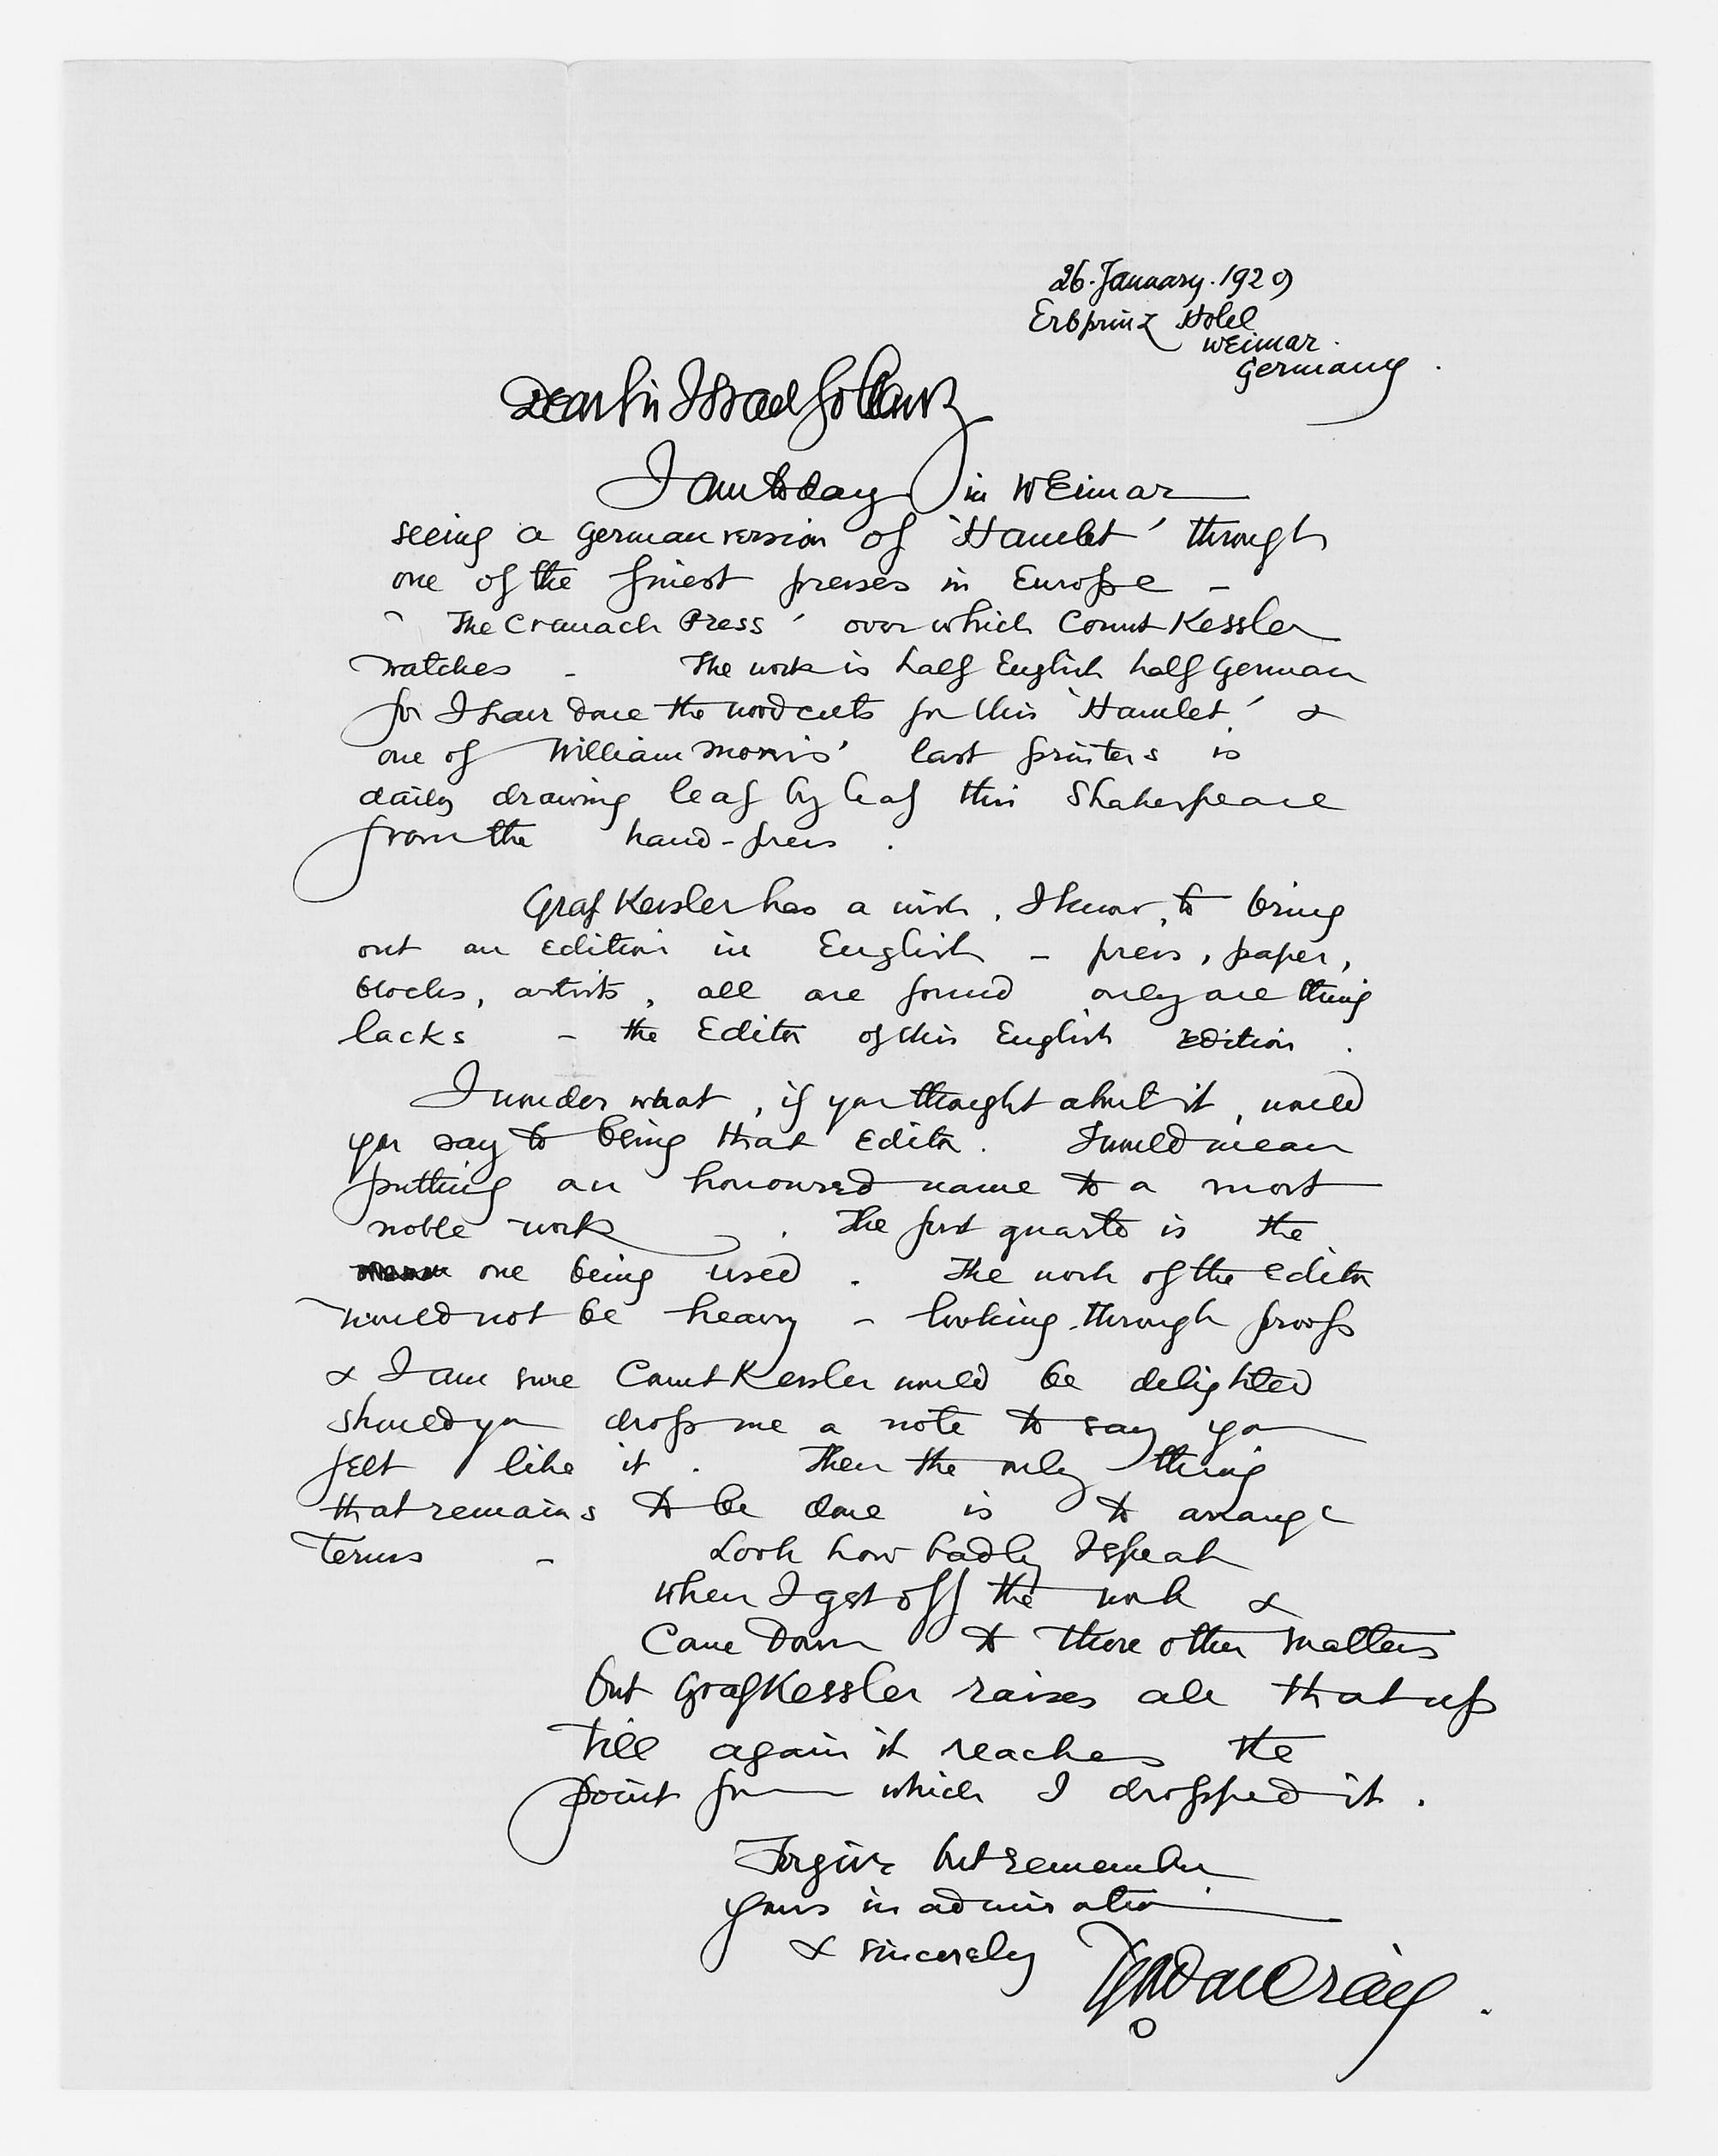 26. January. 1929
Erbprinz Hotel
Weimar.
Germany.
Dear Sir Israel Gollancz
I am today in Weimar
seeing a German version of 'Hamlet' through
one of the finest presses in Europe -
'The Cranach Press' over which Count Kessler
watches - The work is half English half German
for I have done the woodcuts for this 'Hamlet' &
one of William Morris' last printers is
daily drawing leaf by leaf this Shakespeare
from the hand-press.
Graf Kessler has a wish, I know, to bring
out an edition in English - press, paper,
blocks, artists, all are found only one thing
lacks - the Editor of this English Edition.
I wonder what, if you thought about it, would
you say to being that Editor. It would mean
putting an honoured name to a most
noble work. The first quarto is the
one being used. The work of the editor
would not be heavy - looking through proofs
& I am sure Count Kessler would be delighted
should you drop me a note to say you
felt like it. Then the only thing
that remains to be done is to arrange
terms - Look how badly I speak
when I get off the work &
come down to these other matters
but Graf Kessler raises all that up
till again it reaches the
point from which I dropped it.
Forgive but remember
yours in admiration
& sincerely Gordon Craig.